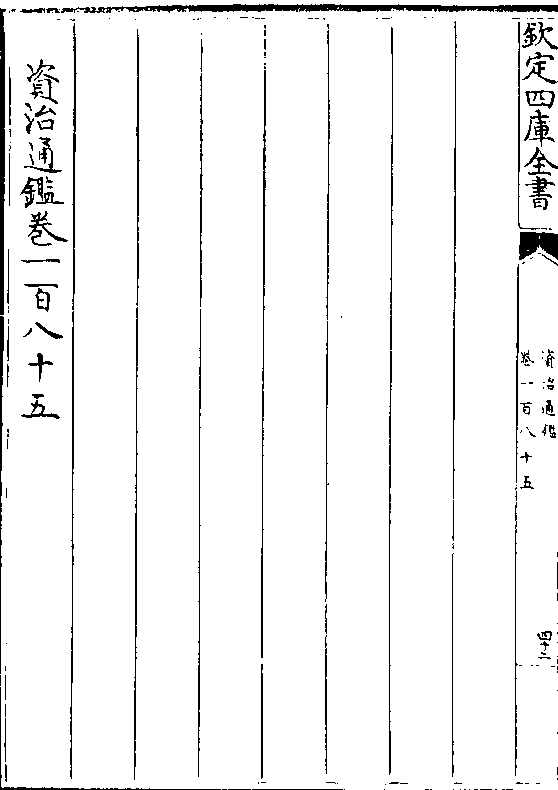 欽定四庫全書
資治通鑑
卷一百八十五
四十二
資治通鑑卷一百八十五